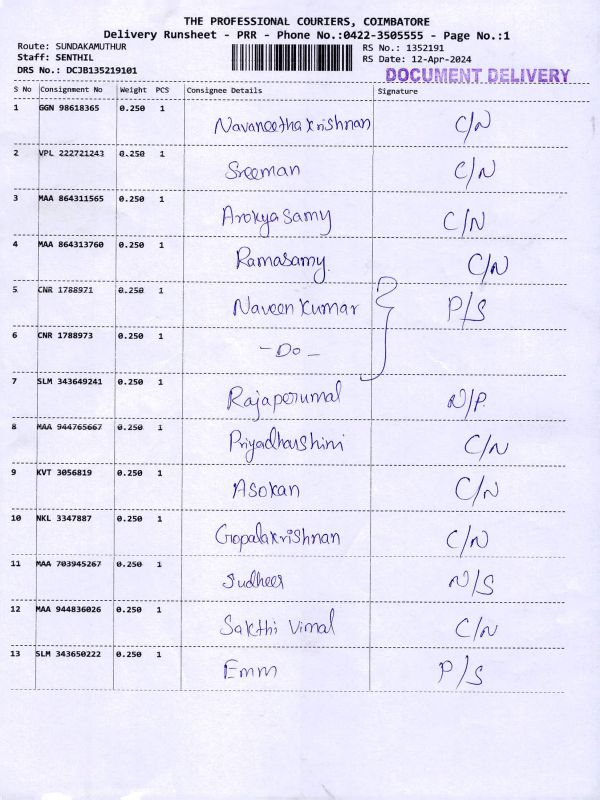 THE PROFESSIONAL COURIERS, COIMBATORE
Delivery Runsheet - PRR - Phone No.:0422-3505555 - Page No.:1
Route: SUNDAKAMUTHUR RS No.: 1352191
Staff: SENTHIL RS Date: 12-Apr-2024
DRS No.: DCJB135219101 DOCUMENT DELIVERY
S No Consignment No Weight PCS Consignee Details Signature
1 GGN 98618365 0.250 1 Navaneethakrishnan C/N
2 VPL 222721243 0.250 1 Sreeman C/N
3 MAA 864311565 0.250 1 Arokyasamy C/N
4 MAA 864313760 0.250 1 Ramasamy C/N
5 CNR 1788971 0.250 1 Naveen Kumar P/S
6 CNR 1788973 0.250 1 - Do -
7 SLM 343649241 0.250 1 Rajaperumal N/P.
8 MAA 944765667 0.250 1 Priyadharshini C/N
9 KVT 3056819 0.250 1 Asokan C/N
10 NKL 3347887 0.250 1 Gopalakrishnan C/N
11 MAA 703945267 0.250 1 Sudheer N/S
12 MAA 944836026 0.250 1 Sakthi Vimal C/N
13 SLM 343650222 0.250 1 Emm P/S